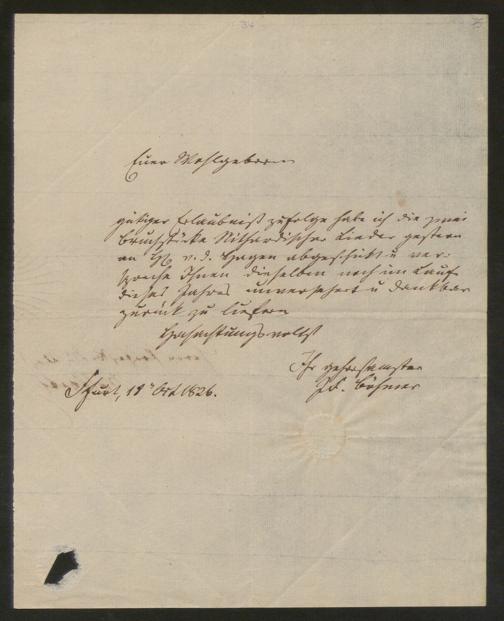 Euer Wohlgeboren
gütiger Erlaubniß zufolge habe ich die zwei
Bruchstücke Nithardischer Lieder gestern
an H. v. d. Hagen abgeschickt u ver-
spreche Ihnen dieselben noch im Lauf
dieses Jahres unversehrt u dankbar
zurück zu liefern
Hochachtungsvollst
Ihr gehorsamster
Fd. Böhmer
Ffurt, 18n Oct 1826.